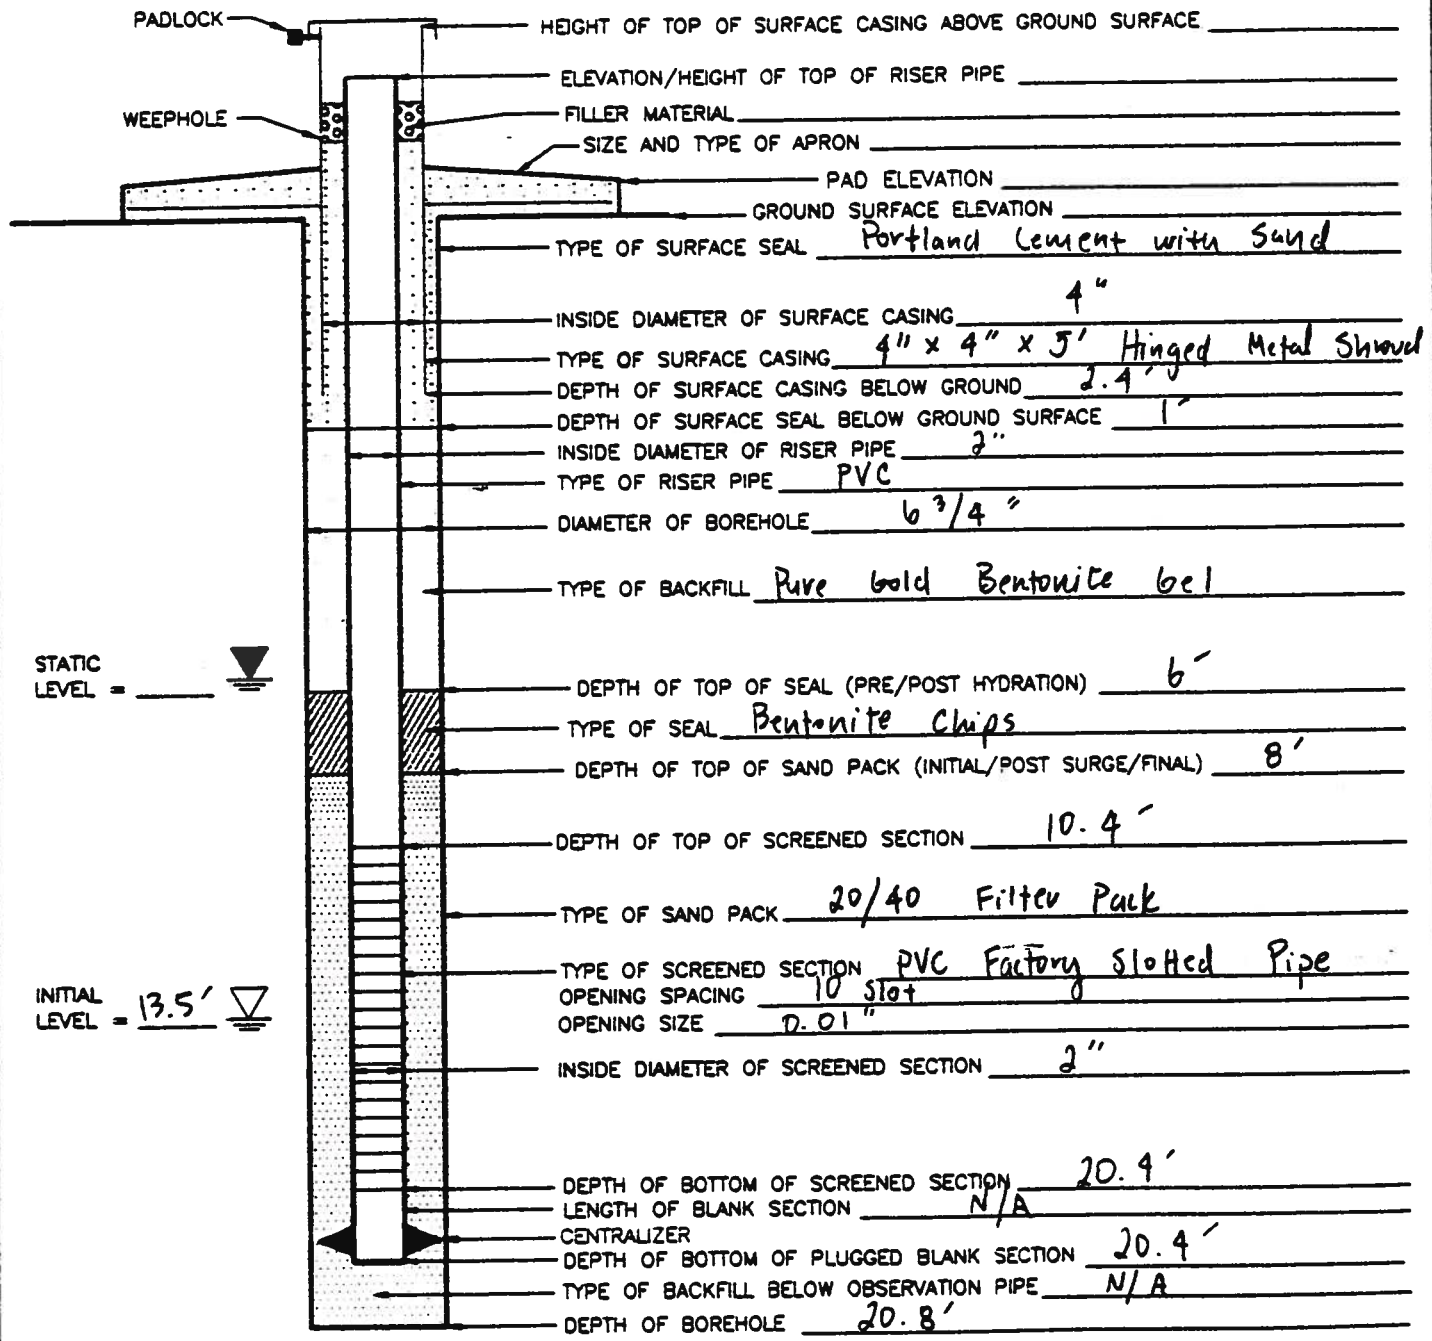 PADLOCK
HEIGHT OF TOP OF SURFACE CASING ABOVE GROUND SURFACE
ELEVATION/HEIGHT OF TOP OF RISER PIPE
WEEPHOLE
FILLER MATERIAL
SIZE AND TYPE OF APRON
PAD ELEVATION
GROUND SURFACE ELEVATION
TYPE OF SURFACE SEAL Portland Cement with Sand
INSIDE DIAMETER OF SURFACE CASING 4"
TYPE OF SURFACE CASING 4" x 4" x 5' Hinged Metal Shroud
DEPTH OF SURFACE CASING BELOW GROUND 2.4'
DEPTH OF SURFACE SEAL BELOW GROUND SURFACE 1'
INSIDE DIAMETER OF RISER PIPE 2"
TYPE OF RISER PIPE PVC
DIAMETER OF BOREHOLE 6 3/4"
TYPE OF BACKFILL Pure Gold Bentonite Gel
STATIC
LEVEL =
DEPTH OF TOP OF SEAL (PRE/POST HYDRATION) 6'
TYPE OF SEAL Bentonite Chips
DEPTH OF TOP OF SAND PACK (INITIAL/POST SURGE/FINAL) 8'
DEPTH OF TOP OF SCREENED SECTION 10.4'
TYPE OF SAND PACK 20/40 Filter Pack
TYPE OF SCREENED SECTION PVC Factory Slotted Pipe
INITIAL
LEVEL = 13.5'
OPENING SPACING 10 Slot
OPENING SIZE 0.01"
INSIDE DIAMETER OF SCREENED SECTION 2"
DEPTH OF BOTTOM OF SCREENED SECTION 20.4'
LENGTH OF BLANK SECTION N/A
CENTRALIZER
DEPTH OF BOTTOM OF PLUGGED BLANK SECTION 20.4'
TYPE OF BACKFILL BELOW OBSERVATION PIPE N/A
DEPTH OF BOREHOLE 20.8'